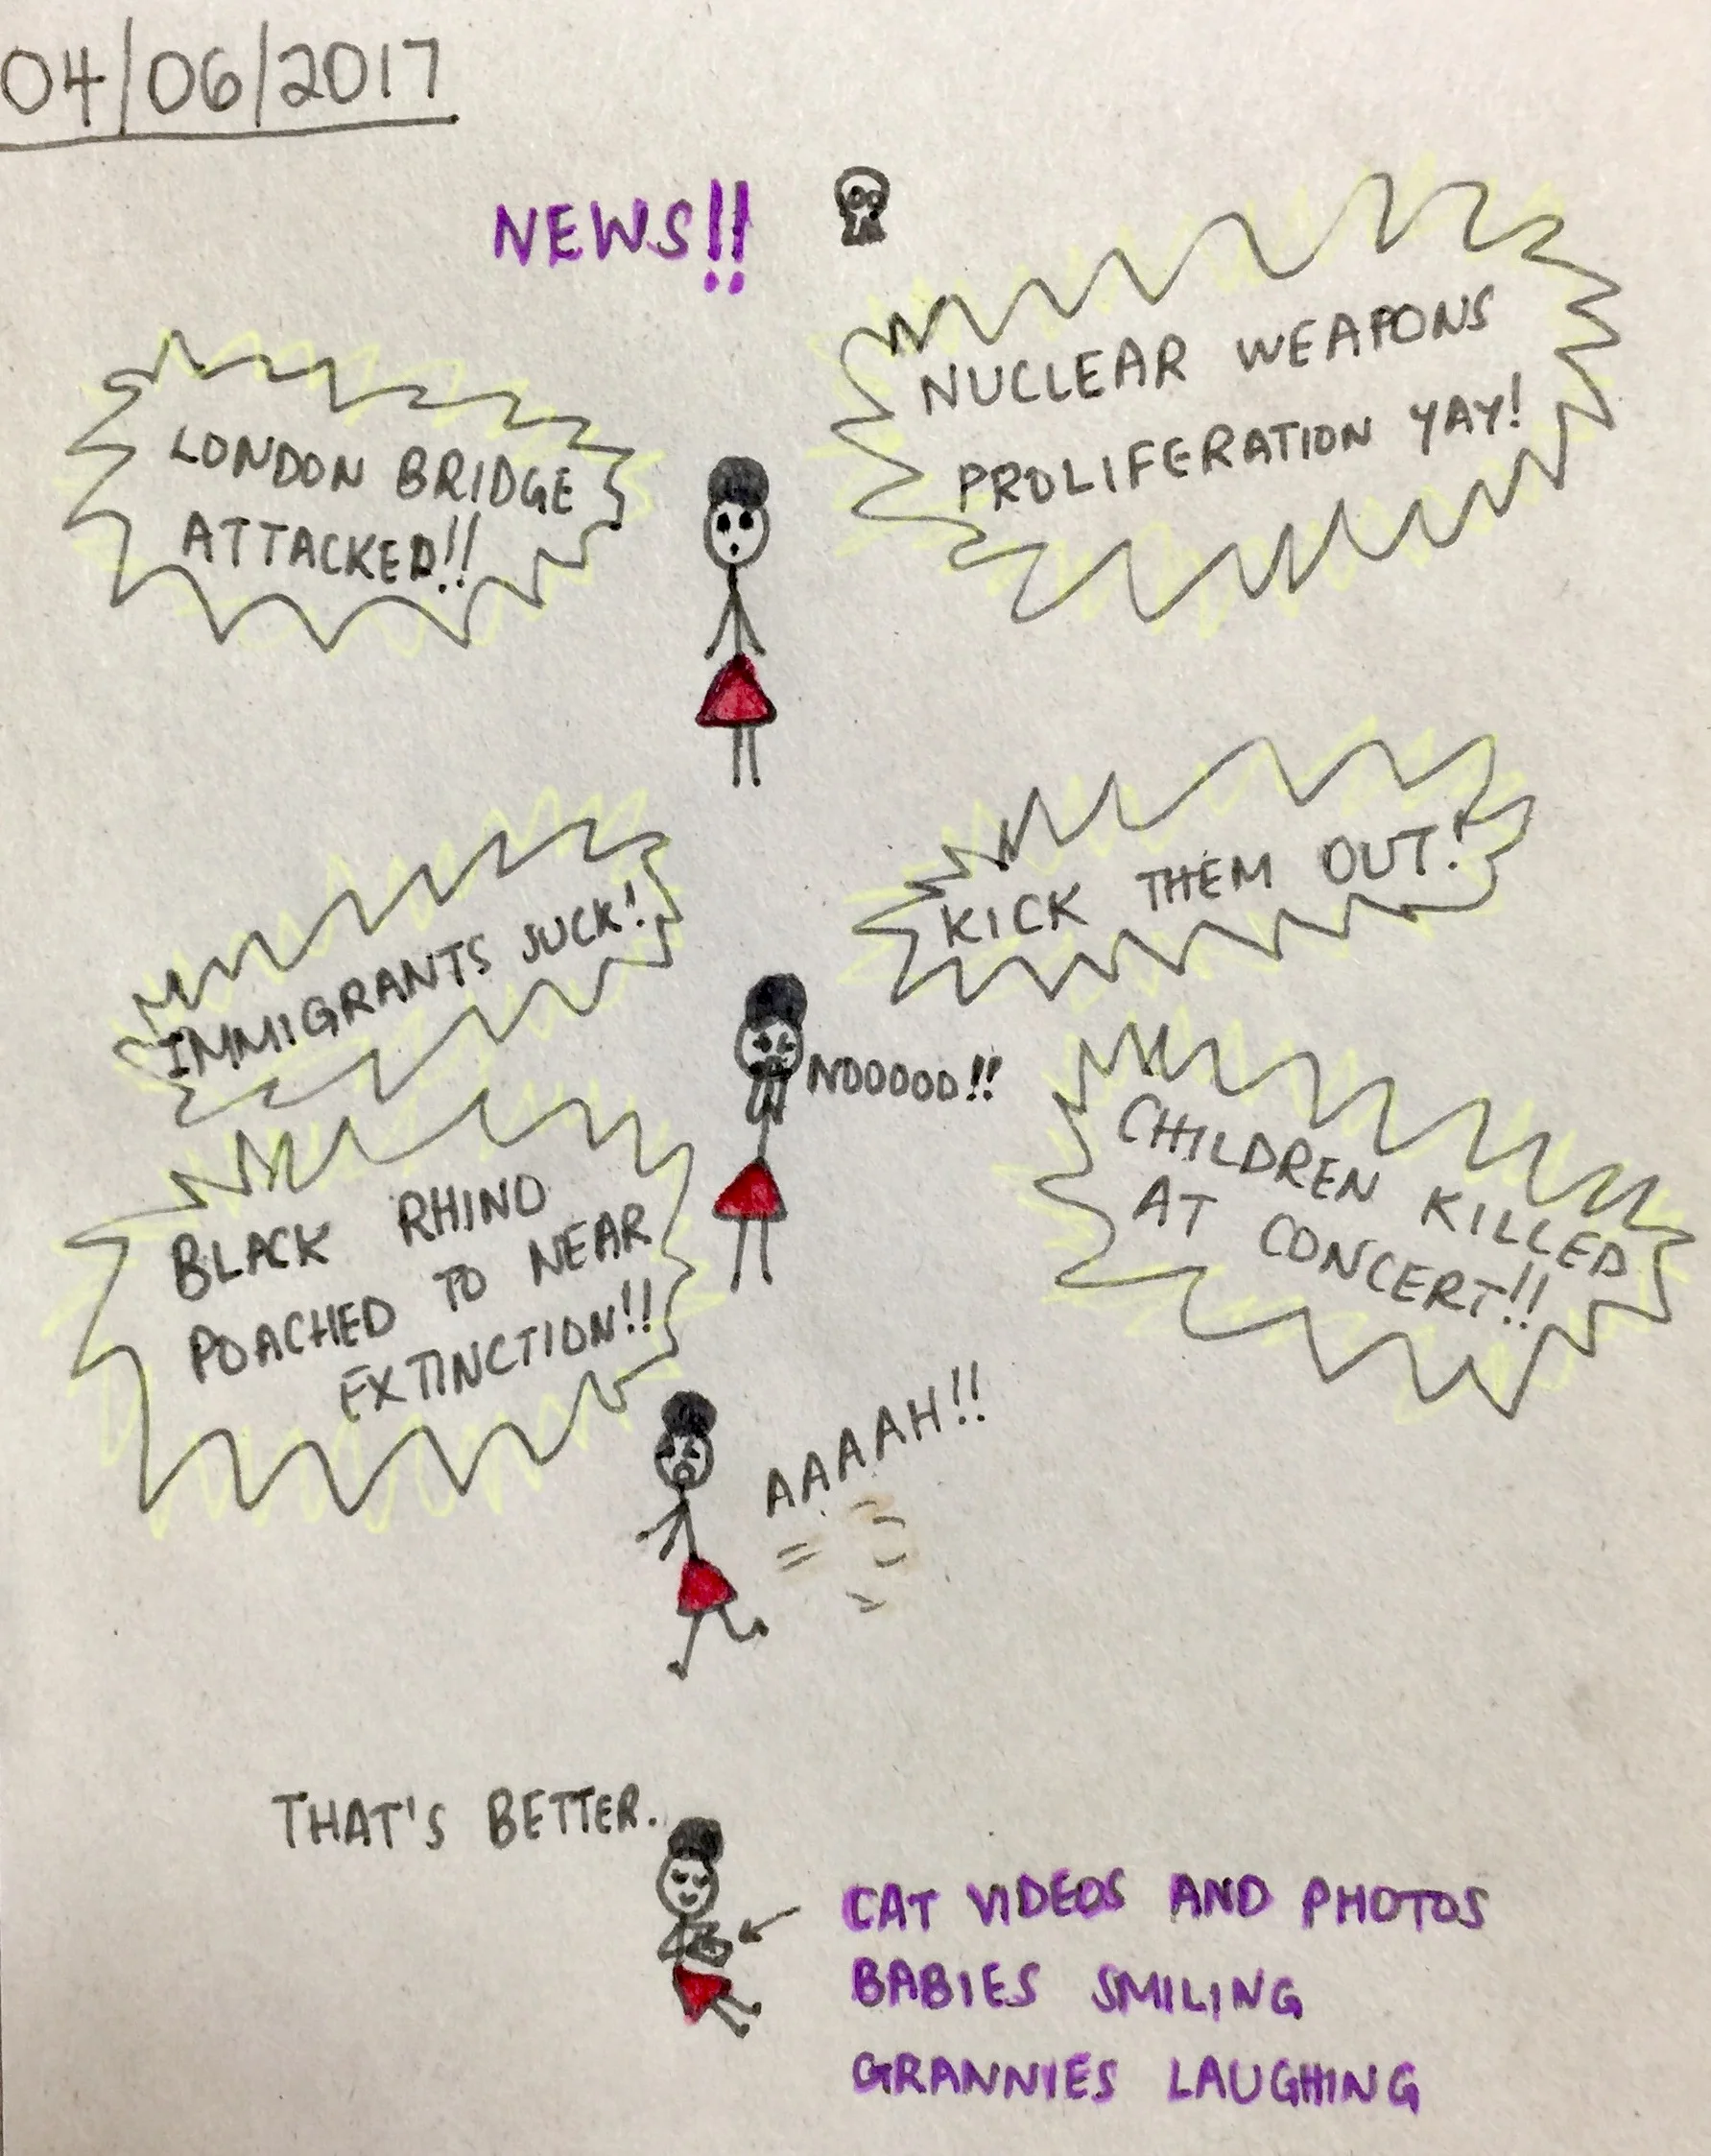 04/06/2017
NEWS!!
LONDON BRIDGE
ATTACKED!!
NUCLEAR WEAPONS
PROLIFERATION YAY!
IMMIGRANTS SUCK!
KICK THEM OUT!
NOOOOO!!
BLACK RHINO
POACHED TO NEAR
EXTINCTION!!
CHILDREN KILLED
AT CONCERT!!
AAAAH!!
THAT'S BETTER.
CAT VIDEOS AND PHOTOS
BABIES SMILING
GRANNIES LAUGHING